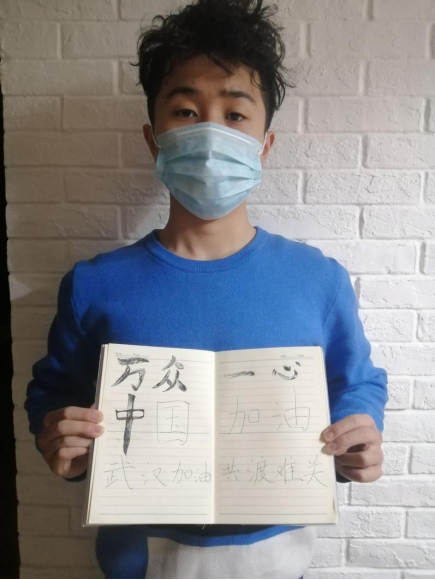 万众一心
中国加油
武汉加油共渡难关